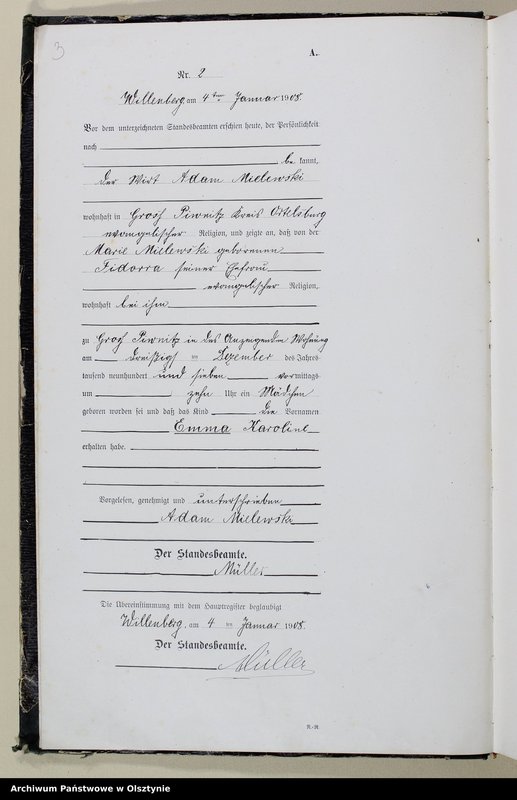 3
A.
Nr. 2
Willenberg am 4ten Januar 1908.
Vor dem unterzeichneten Standesbeamten erschien heute, der Persönlichkeit
nach
be kannt,
der Wirt Adam Mielewski
wohnhaft in Groß Piwnitz Kreis Ortelsburg
evangelischer Religion, und zeigte an, daß von der
Marie Mielewski geborenen
Fidorra seiner Ehefrau
evangelischer Religion,
wohnhaft bei ihm
zu Groß Piwnitz in des Anzeigenden Wohnung
am dreißigst en Dezember des Jahres
tausend neunhundert und sieben vormittags
um zehn Uhr ein Mädchen
geboren worden sei und daß das Kind die Vornamen
Emma Karoline
erhalten habe.
Vorgelesen, genehmigt und unterschrieben
Adam Mielewski
Der Standesbeamte.
Müller
Die Übereinstimmung mit dem Hauptregister beglaubigt
Willenberg, am 4 ten Januar 1908.
Der Standesbeamte.
Müller
Archiwum Państwowe w Olsztynie